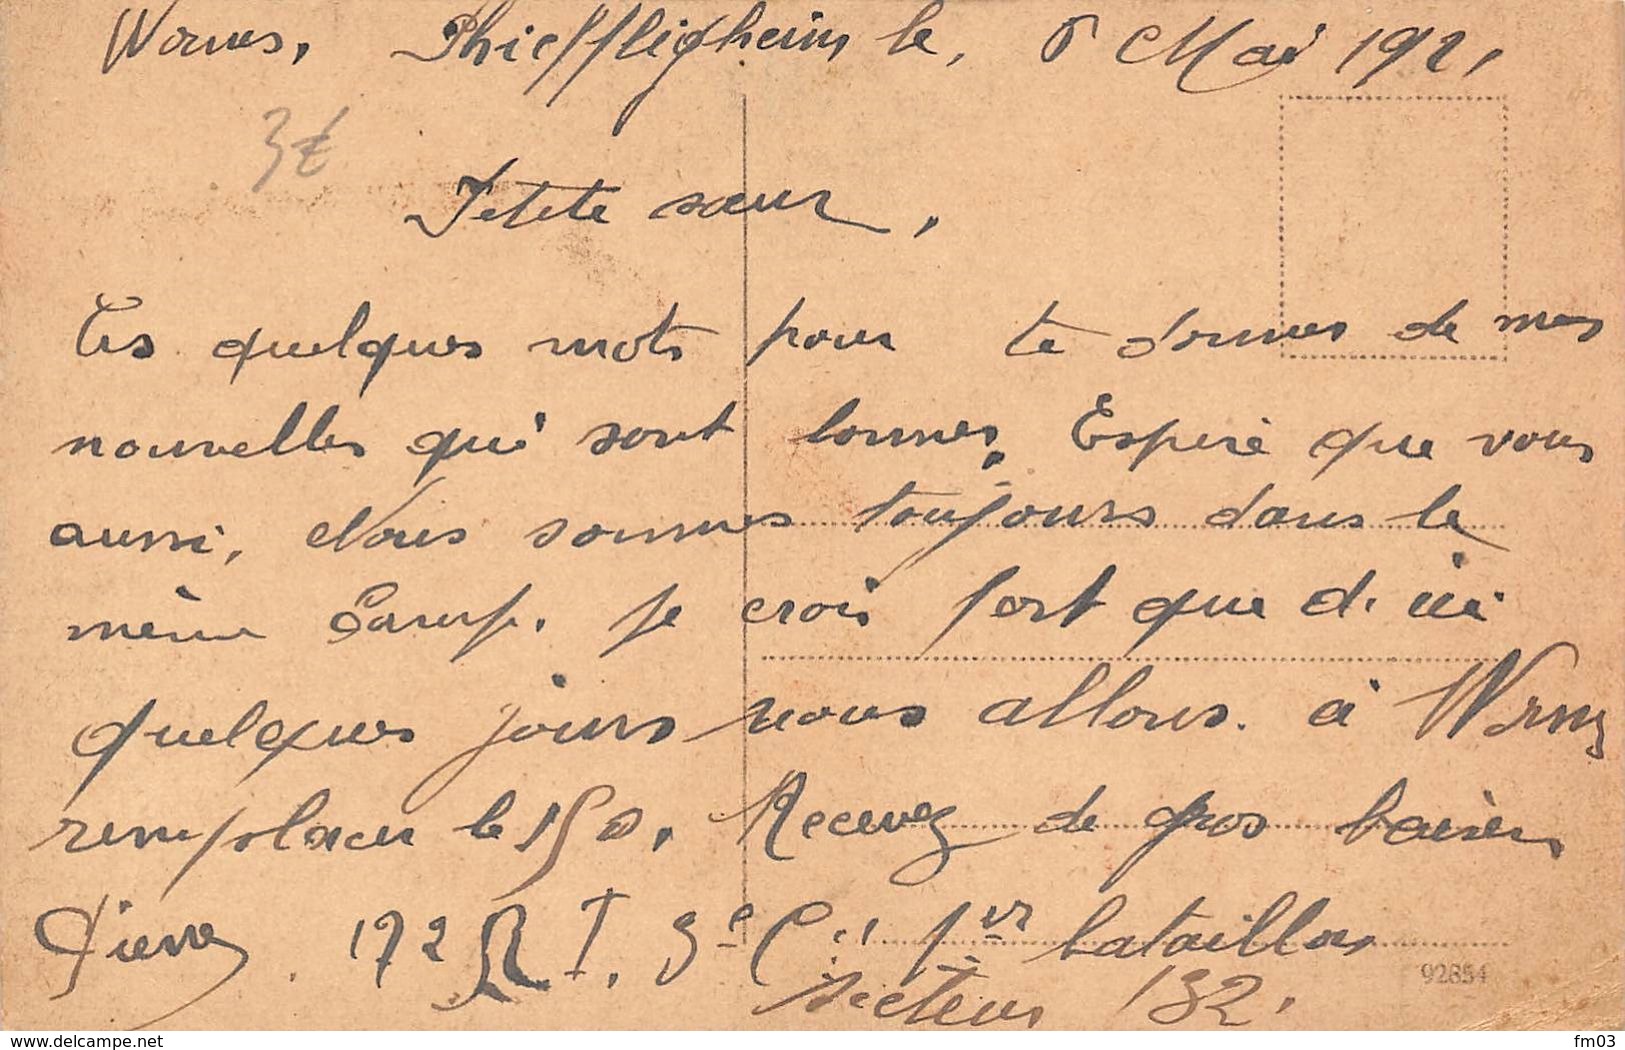 Worms, Phiffligheim le, 6 Mai 1921
3€
Petite sœur,
Ces quelques mots pour te donner de mes
nouvelles qui sont bonnes, Espère que vous
aussi, Nous sommes toujours dans le
même Camp. Je crois fort que d'ici
quelques jours nous allons à Worms
remplacer le 150. Recevez de gros baisers
Pierre. 172 R I. 3e Cie 1er bataillon
secteur 132.
92854
delcampe.net
fm03